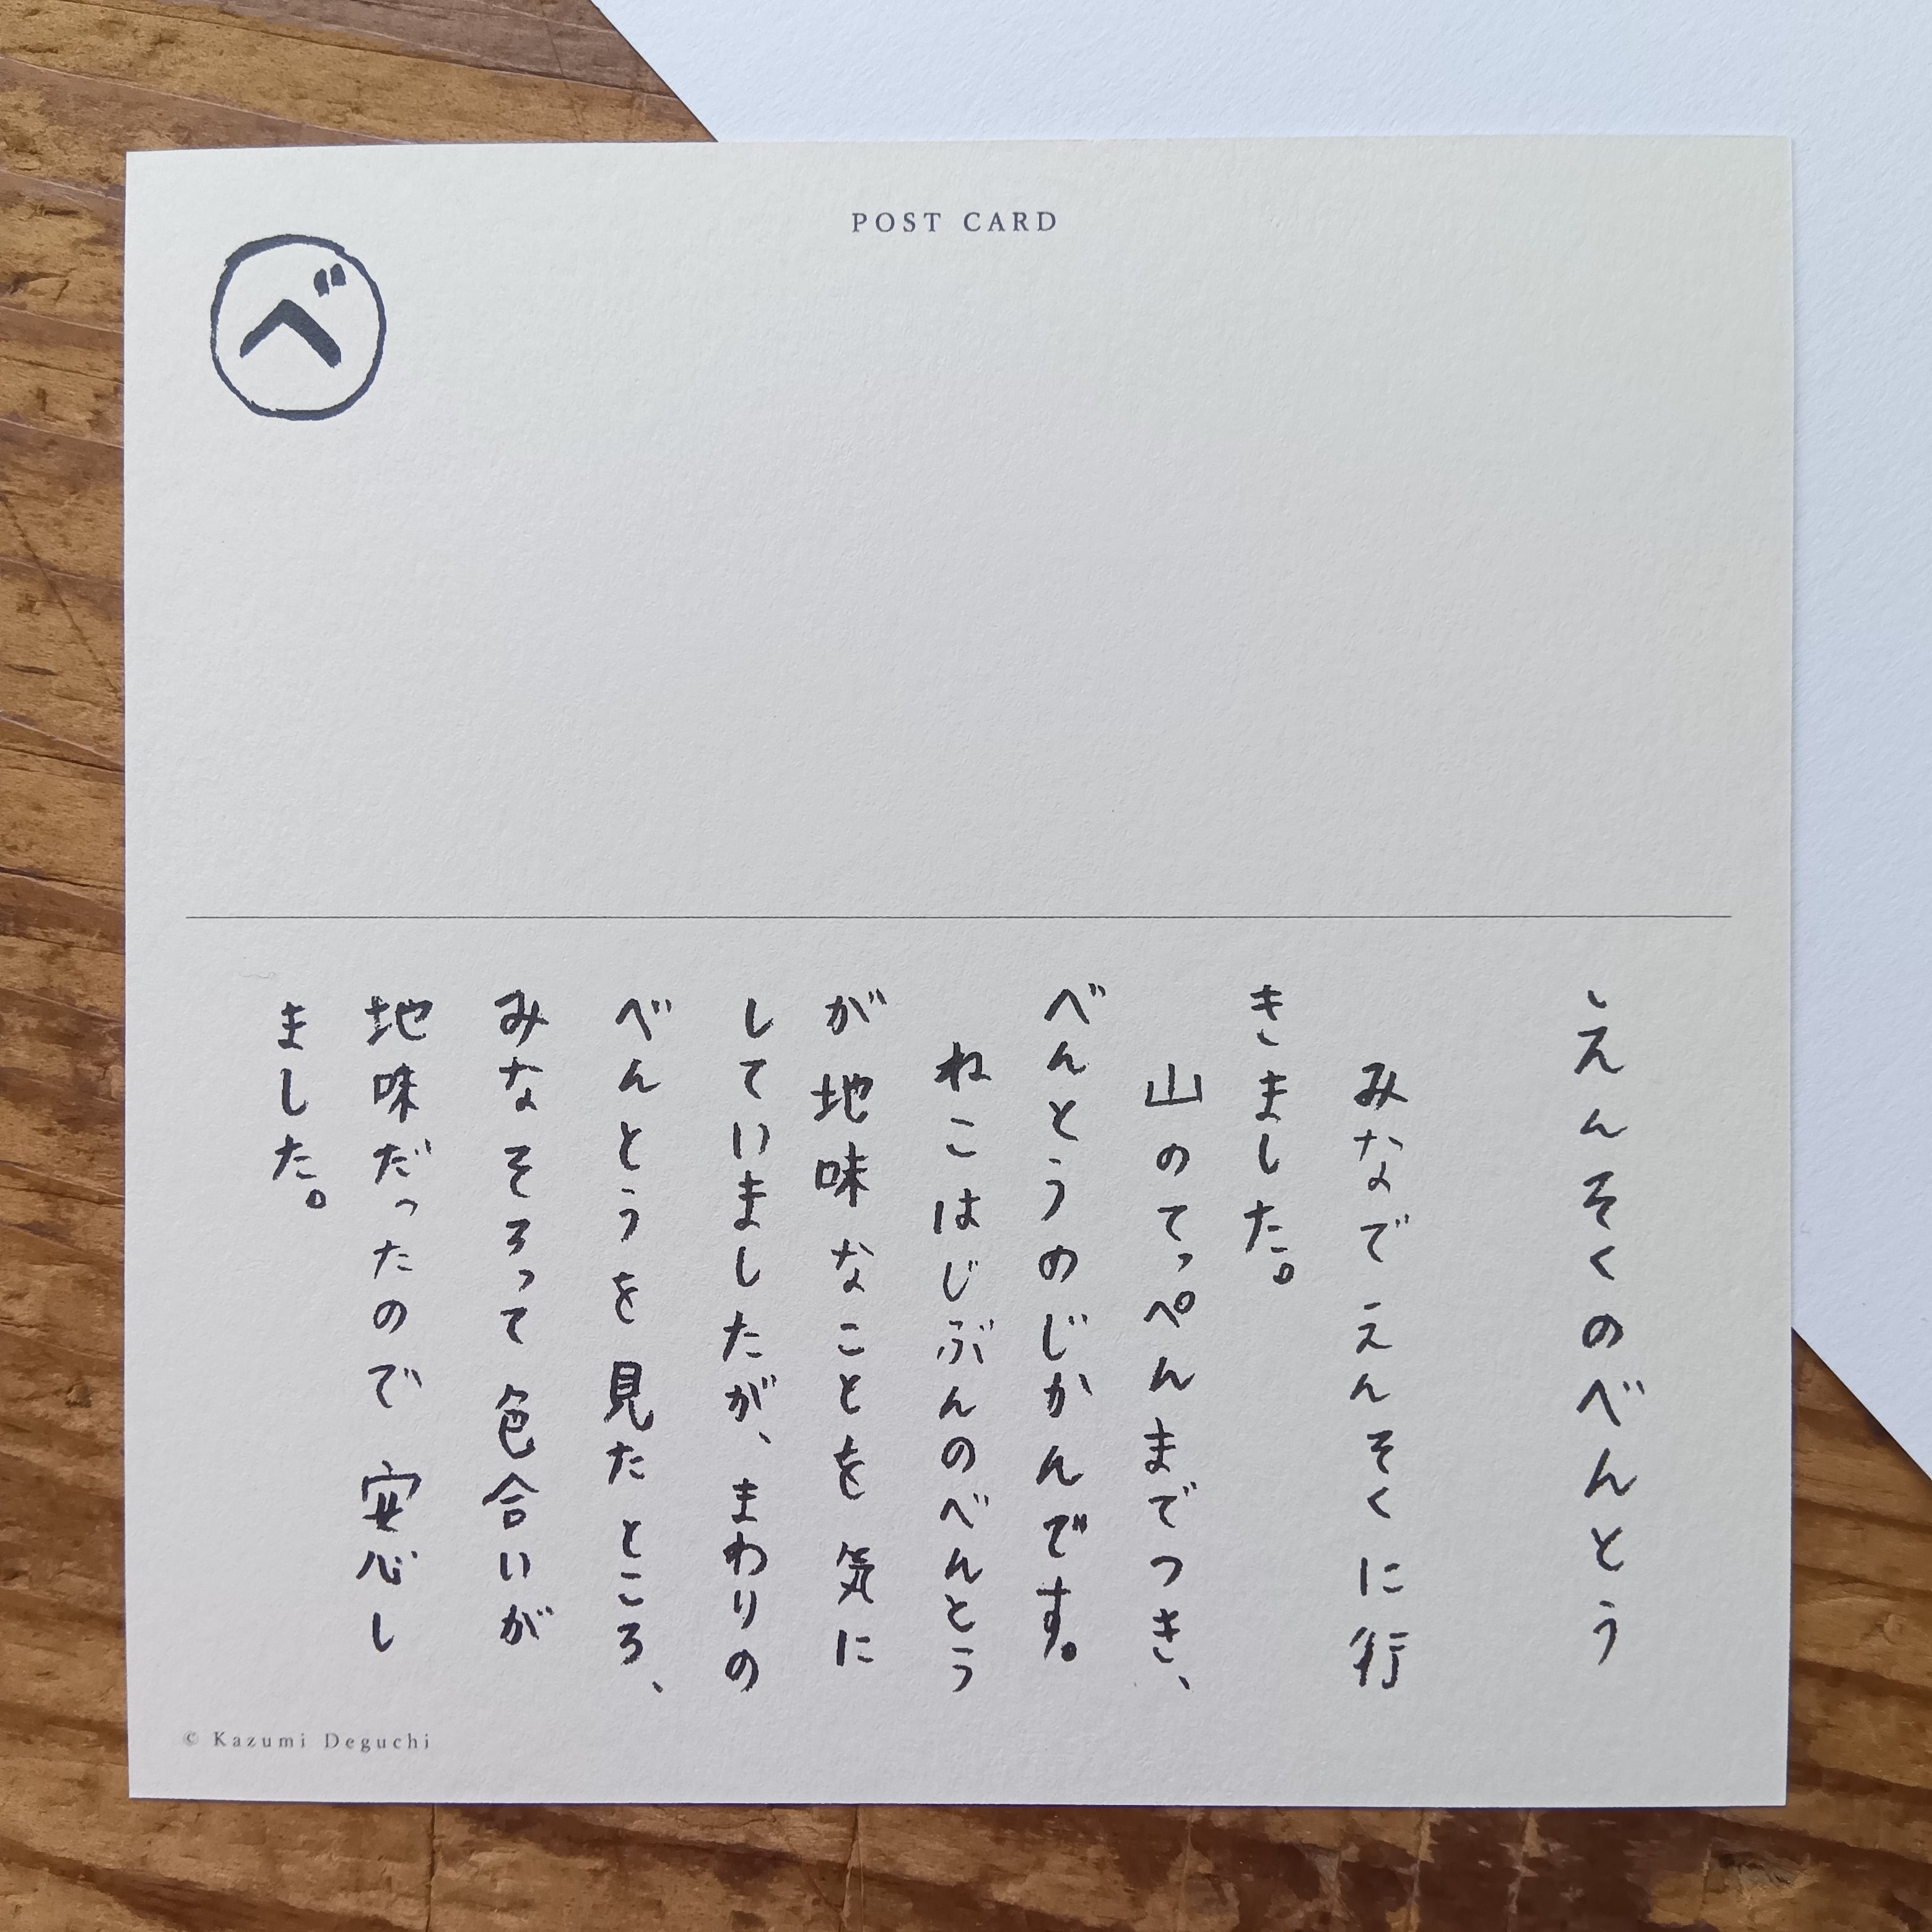 POST CARD
べ
えんそくのべんとう
みなでえんそくに行
きました。
山のてっぺんまでつき、
べんとうのじかんです。
ねこはじぶんのべんとう
が地味なことを気に
していましたが、まわりの
べんとうを見たところ、
みなそろって色合いが
地味だったので安心し
ました。
© Kazumi Deguchi